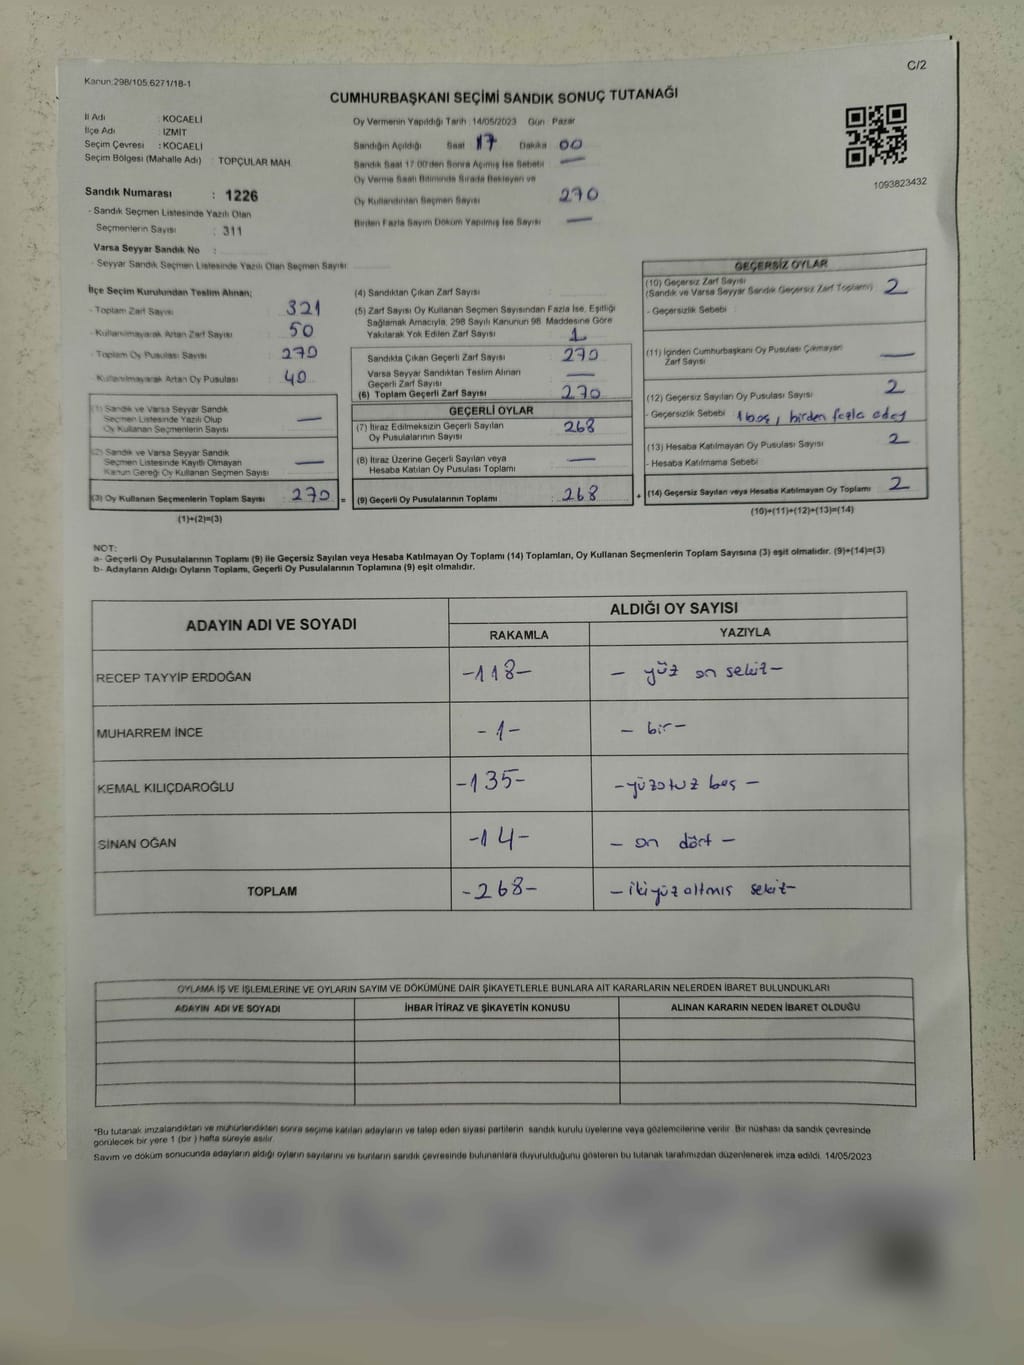 C/2
Kanun:298/105,6271/18-1
CUMHURBAŞKANI SEÇİMİ SANDIK SONUÇ TUTANAĞI
İl Adı : KOCAELİ
İlçe Adı : İZMİT
Seçim Çevresi : KOCAELİ
Seçim Bölgesi (Mahalle Adı) : TOPÇULAR MAH.
Sandık Numarası : 1226
- Sandık Seçmen Listesinde Yazılı Olan
Seçmenlerin Sayısı : 311
Varsa Seyyar Sandık No :
- Seyyar Sandık Seçmen Listesinde Yazılı Olan Seçmen Sayısı:
Oy Vermenin Yapıldığı Tarih :14/05/2023 Gün : Pazar
Sandığın Açıldığı Saat 17 Dakika 00
Sandık Saat 17:00'den Sonra Açılmış İse Sebebi —
Oy Verme Saati Bitiminde Sırada Bekleyen ve
Oy Kullandırılan Seçmen Sayısı 270
Birden Fazla Sayım Döküm Yapılmış İse Sayısı —
1093823432
İlçe Seçim Kurulundan Teslim Alınan;
- Toplam Zarf Sayısı 321
- Kullanılmayarak Artan Zarf Sayısı 50
- Toplam Oy Pusulası Sayısı 270
- Kullanılmayarak Artan Oy Pusulası 40
(1) Sandık ve Varsa Seyyar Sandık
Seçmen Listesinde Yazılı Olup
Oy Kullanan Seçmenlerin Sayısı —
(2) Sandık ve Varsa Seyyar Sandık
Seçmen Listesinde Kayıtlı Olmayan
Kanun Gereği Oy Kullanan Seçmen Sayısı —
(3) Oy Kullanan Seçmenlerin Toplam Sayısı : 270 =
(1)+(2)=(3)
(4) Sandıktan Çıkan Zarf Sayısı :
(5) Zarf Sayısı Oy Kullanan Seçmen Sayısından Fazla İse, Eşitliği
Sağlamak Amacıyla, 298 Sayılı Kanunun 98. Maddesine Göre
Yakılarak Yok Edilen Zarf Sayısı 1
Sandıkta Çıkan Geçerli Zarf Sayısı 270
Varsa Seyyar Sandıktan Teslim Alınan
Geçerli Zarf Sayısı —
(6) Toplam Geçerli Zarf Sayısı 270
GEÇERLİ OYLAR
(7) İtiraz Edilmeksizin Geçerli Sayılan
Oy Pusulalarının Sayısı 268
(8) İtiraz Üzerine Geçerli Sayılan veya
Hesaba Katılan Oy Pusulası Toplamı —
(9) Geçerli Oy Pusulalarının Toplamı : 268 +
GEÇERSİZ OYLAR
(10) Geçersiz Zarf Sayısı
(Sandık ve Varsa Seyyar Sandık Geçersiz Zarf Toplamı) 2
- Geçersizlik Sebebi :
(11) İçinden Cumhurbaşkanı Oy Pusulası Çıkmayan
Zarf Sayısı —
(12) Geçersiz Sayılan Oy Pusulası Sayısı 2
- Geçersizlik Sebebi : 1 boş, birden fazla aday
(13) Hesaba Katılmayan Oy Pusulası Sayısı 2
- Hesaba Katılmama Sebebi
(14) Geçersiz Sayılan veya Hesaba Katılmayan Oy Toplamı 2
(10)+(11)+(12)+(13)=(14)
NOT:
a- Geçerli Oy Pusulalarının Toplamı (9) ile Geçersiz Sayılan veya Hesaba Katılmayan Oy Toplamı (14) Toplamları, Oy Kullanan Seçmenlerin Toplam Sayısına (3) eşit olmalıdır. (9)+(14)=(3)
b- Adayların Aldığı Oyların Toplamı, Geçerli Oy Pusulalarının Toplamına (9) eşit olmalıdır.
ADAYIN ADI VE SOYADI ALDIĞI OY SAYISI
RAKAMLA YAZIYLA
RECEP TAYYİP ERDOĞAN -118- - yüz on sekiz-
MUHARREM İNCE -1- - bir-
KEMAL KILIÇDAROĞLU -135- -yüzotuz beş -
SİNAN OĞAN -14- - on dört -
TOPLAM -268- -ikiyüz altmış sekiz-
OYLAMA İŞ VE İŞLEMLERİNE VE OYLARIN SAYIM VE DÖKÜMÜNE DAİR ŞİKAYETLERLE BUNLARA AİT KARARLARIN NELERDEN İBARET BULUNDUKLARI
ADAYIN ADI VE SOYADI İHBAR İTİRAZ VE ŞİKAYETİN KONUSU ALINAN KARARIN NEDEN İBARET OLDUĞU
*Bu tutanak imzalandıktan ve mühürlendikten sonra seçime katılan adayların ve talep eden siyasi partilerin sandık kurulu üyelerine veya gözlemcilerine verilir. Bir nüshası da sandık çevresinde
görülecek bir yere 1 (bir ) hafta süreyle asılır.
Sayım ve döküm sonucunda adayların aldığı oyların sayılarını ve bunların sandık çevresinde bulunanlara duyurulduğunu gösteren bu tutanak tarafımızdan düzenlenerek imza edildi. 14/05/2023